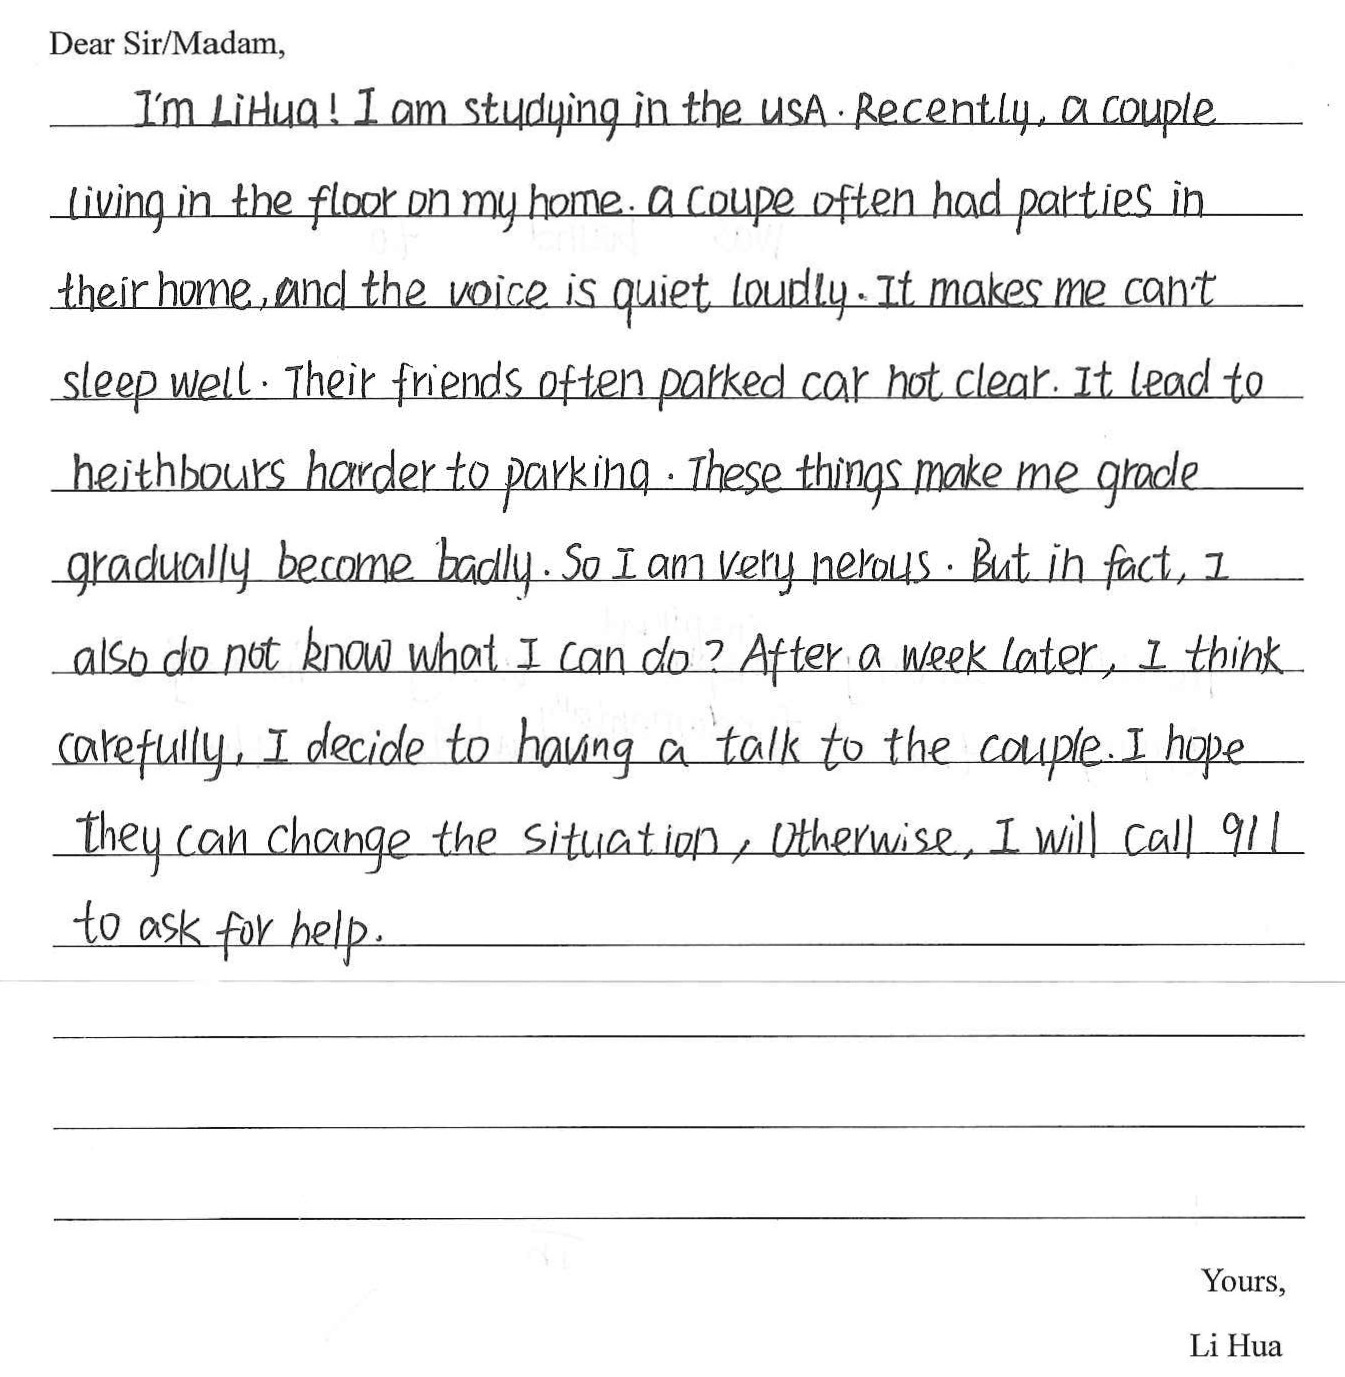 Dear Sir/Madam,
I'm LiHua! I am studying in the USA. Recently, a couple
living in the floor on my home. a coupe often had parties in
their home, and the voice is quiet loudly. It makes me can't
sleep well. Their friends often parked car not clear. It lead to
heithbours harder to parking. These things make me grade
gradually become badly. So I am very nerous. But in fact, I
also do not know what I can do? After a week later, I think
carefully, I decide to having a talk to the couple. I hope
they can change the situation, Otherwise, I will call 911
to ask for help.
Yours,
Li Hua